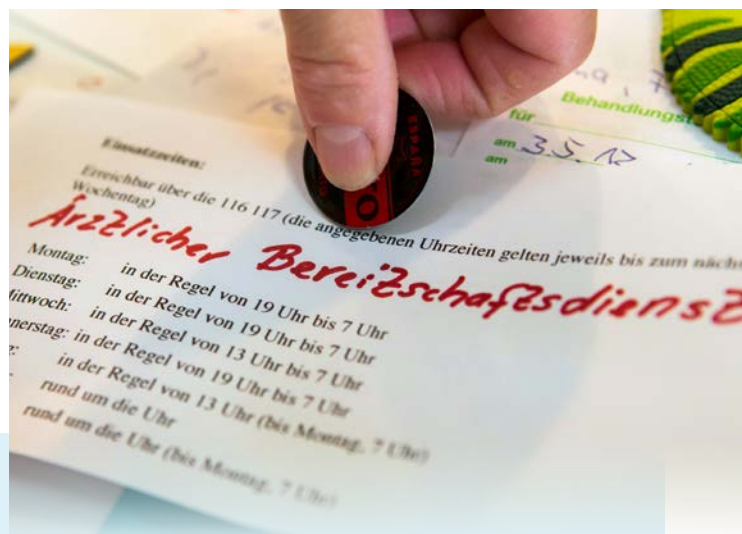 für Behandlungst
am 3.5.12
am
ESPAÑA
TO
Einsatzzeiten:
Erreichbar über die 116 117 (die angegebenen Uhrzeiten gelten jeweils bis zum nächs
Wochentag)
Ärztlicher Bereitschaftsdienst
Montag: in der Regel von 19 Uhr bis 7 Uhr
Dienstag: in der Regel von 19 Uhr bis 7 Uhr
Mittwoch: in der Regel von 13 Uhr bis 7 Uhr
nnerstag: in der Regel von 19 Uhr bis 7 Uhr
g: in der Regel von 13 Uhr (bis Montag, 7 Uhr)
rund um die Uhr
rund um die Uhr (bis Montag, 7 Uhr)